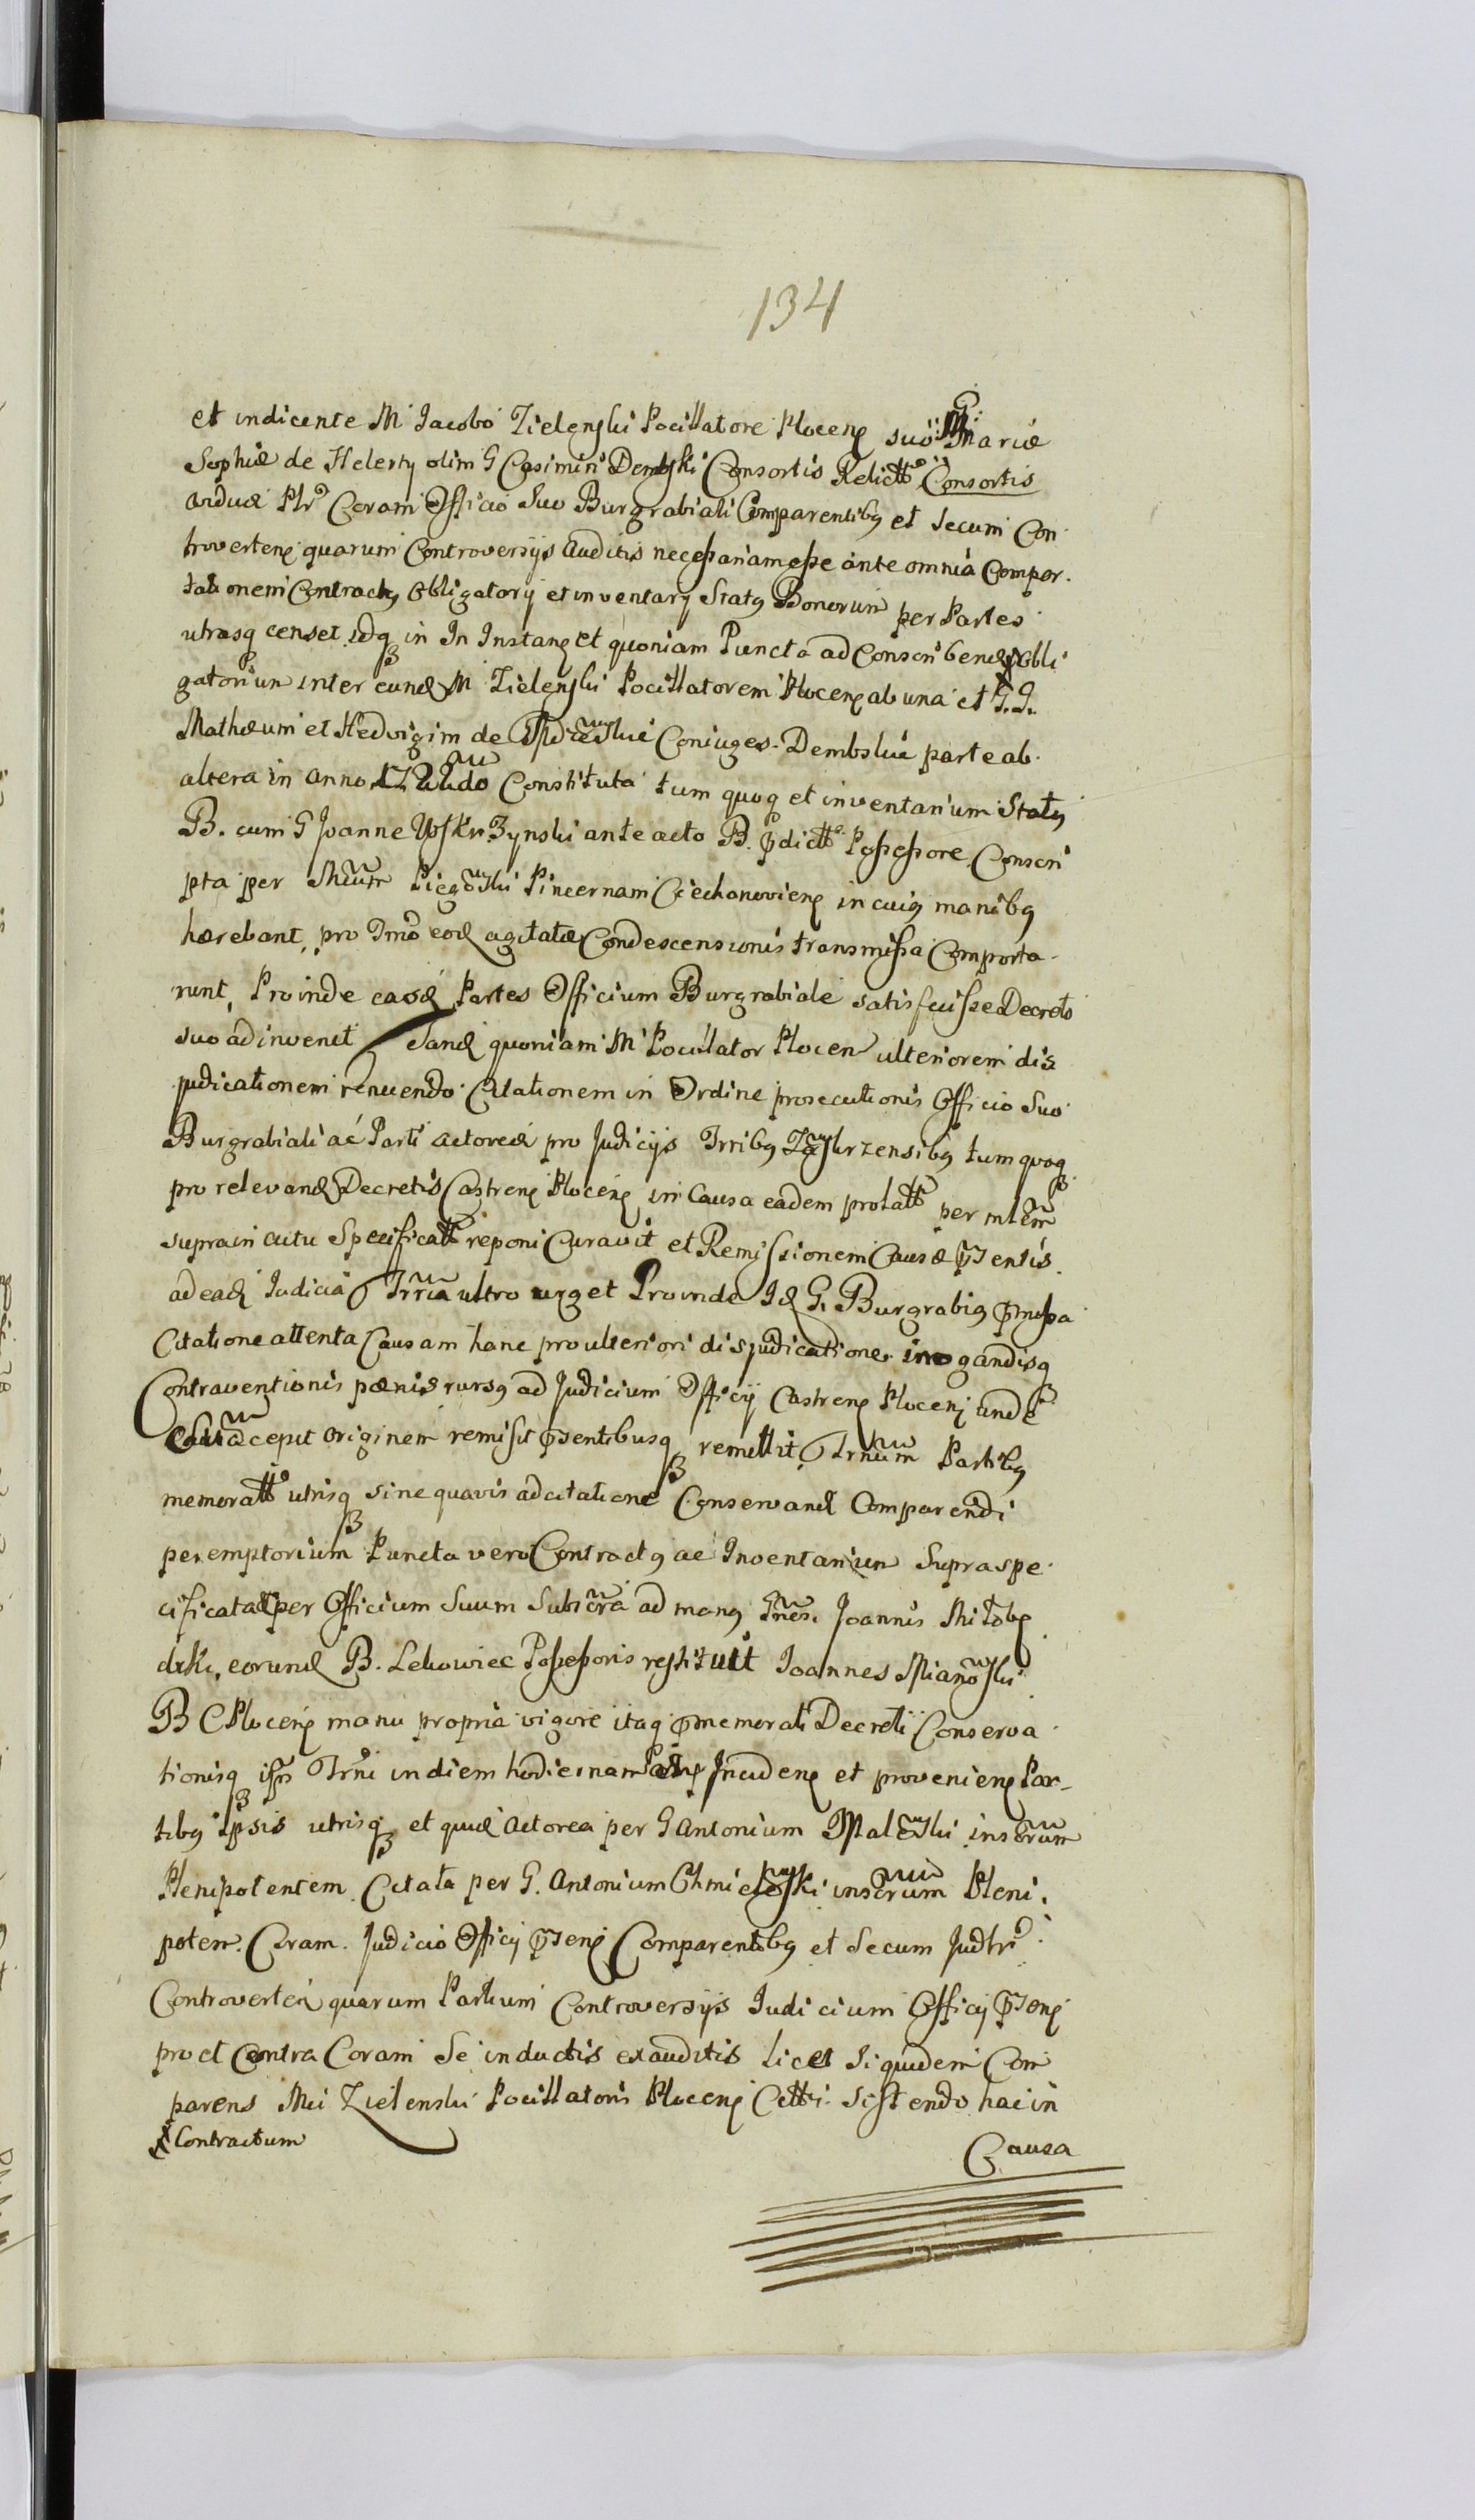 134
et indicente M Jacobo Zielenski Pocillatore Plocen suo G: Mariæ
Sophiæ de Helerty olim G Casimiri Dembski Consortis Relictt Consortis
Viduæ Pltr Coram Officio Suo Burgrabiali Comparentibq et Secum Con
troverten quarum Controversijs Auditis necessariam esse ante omnia Compor.
tationem Contractq Obligatorij et inventarij Statq Bonorum per Partes
utrasq censet idq in In Instan et quoniam Puncta ad Conscribend Obli
gatorium inter eund M Zielenski Pocillatorem Plocen ab una et G.G.
Mathæum et Hedvigim de Coniuges Dembskie parte ab
altera in anno Constituta tum quoq et inventarium Statq
B. cum G Joanne Ossessore Conscri
pta per Mcum Piegowski Pincernam Ciechanovien in cuiq manibq
hærebant, pro Tmo eod agitatæ Condescensionis transmissa Comporta-
runt, Proinde easd Partes Officium Burgrabiale satisfecisse Decreto
suo adinvenit Sand quoniam M Pocillator Plocen ulteriorem dis
judicationem renuendo Citationem in Ordine prosecutionis Officio Suo
Burgrabiali ac Parti actoreæ pro Judicijs Trribq Zawskrzensibq tum quoq
pro relevand Decretis Castren Plocen in Causa eadem prolatt per mlem
supra in actu Specificatt reponi Curavit et Remissionem Causæ pntis
ad ead Judicia Trria ultro urget Proinde Id G. Burgrabiq pmissa
Citatione attenta Causam hanc pro ulteriori disjudicatione irrogandisq
Contraventionis pœnis rursq ad Judicium Officij Castren Plocen unde
Causa cepit originem remisit pntibusq remittit Trnum Partibq
memoratt utrisq sine quavis adcitatione Conservand Comparendi
peremptorium Puncta vero Contractq ac Inventarium Supraspe
cificata per Officium Suum Subscra ad manq Gnes. Joannis
eorund B. Lekowiec Possessoris restituit Joannes Mianowski
B C Plocen manu propria vigore itaq pmemorati Decreti Conserva
tionisq Trni in diem hodiernam Inciden et provenien Par-
tibq ipsis utrisq et quid Actorea per G Antonium insrum
Plenipotentem Citata per G. Antonium Chmielewski insrum Pleni.
poten. Coram Judicio Officij pnten Comparentibq et Secum Judtr
Controverten quarum Partium Controversijs Judicium Officij pnten
pro et Contra Coram Se inductis exauditis licet siquidem Com
parens Mci Zielenski Pocillatoris Plocen Citti sistendo hac in
Contractum
Causa